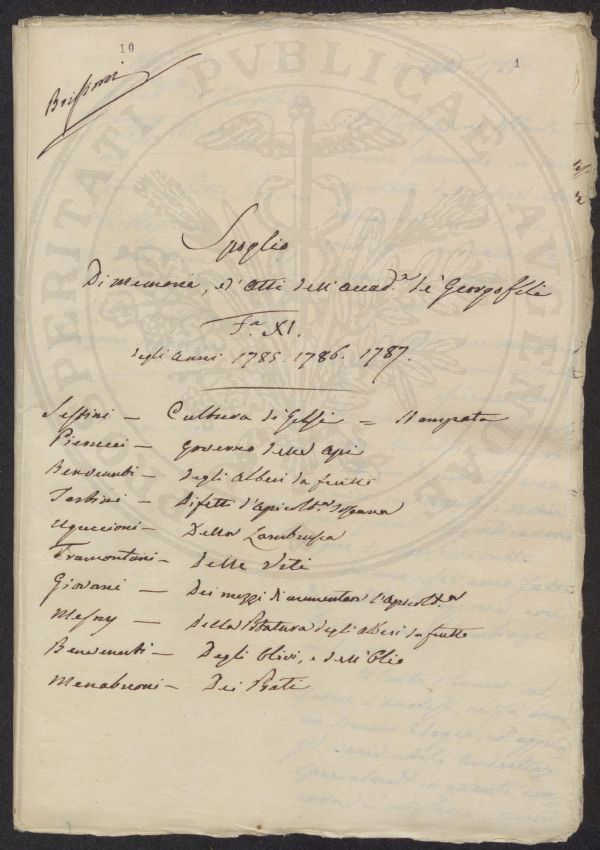 10
1
Spoglio
Di memorie, ed' Atti dell'accad.a de' Georgofili
F.a XI.
degli Anni 1785. 1786. 1787.
Sestini — Cultura di Gelsi = Stampata
Pierucci — governo delle Api
Benvenuti — degli Alberi da frutti
Tartini — Difetti d'Agricolt.a Toscana
Uguccioni — Della
Tramontani — delle Viti
Giovani — Dei mezzi di aumentare l'Agricolt.a
Mesny — della Potatura degli alberi da frutto
Benvenuti — Degli Olivi, e dell'Olio
Menabuoni — Dei Prati
PROSPERITATI PVBLICAE AVGENDAE